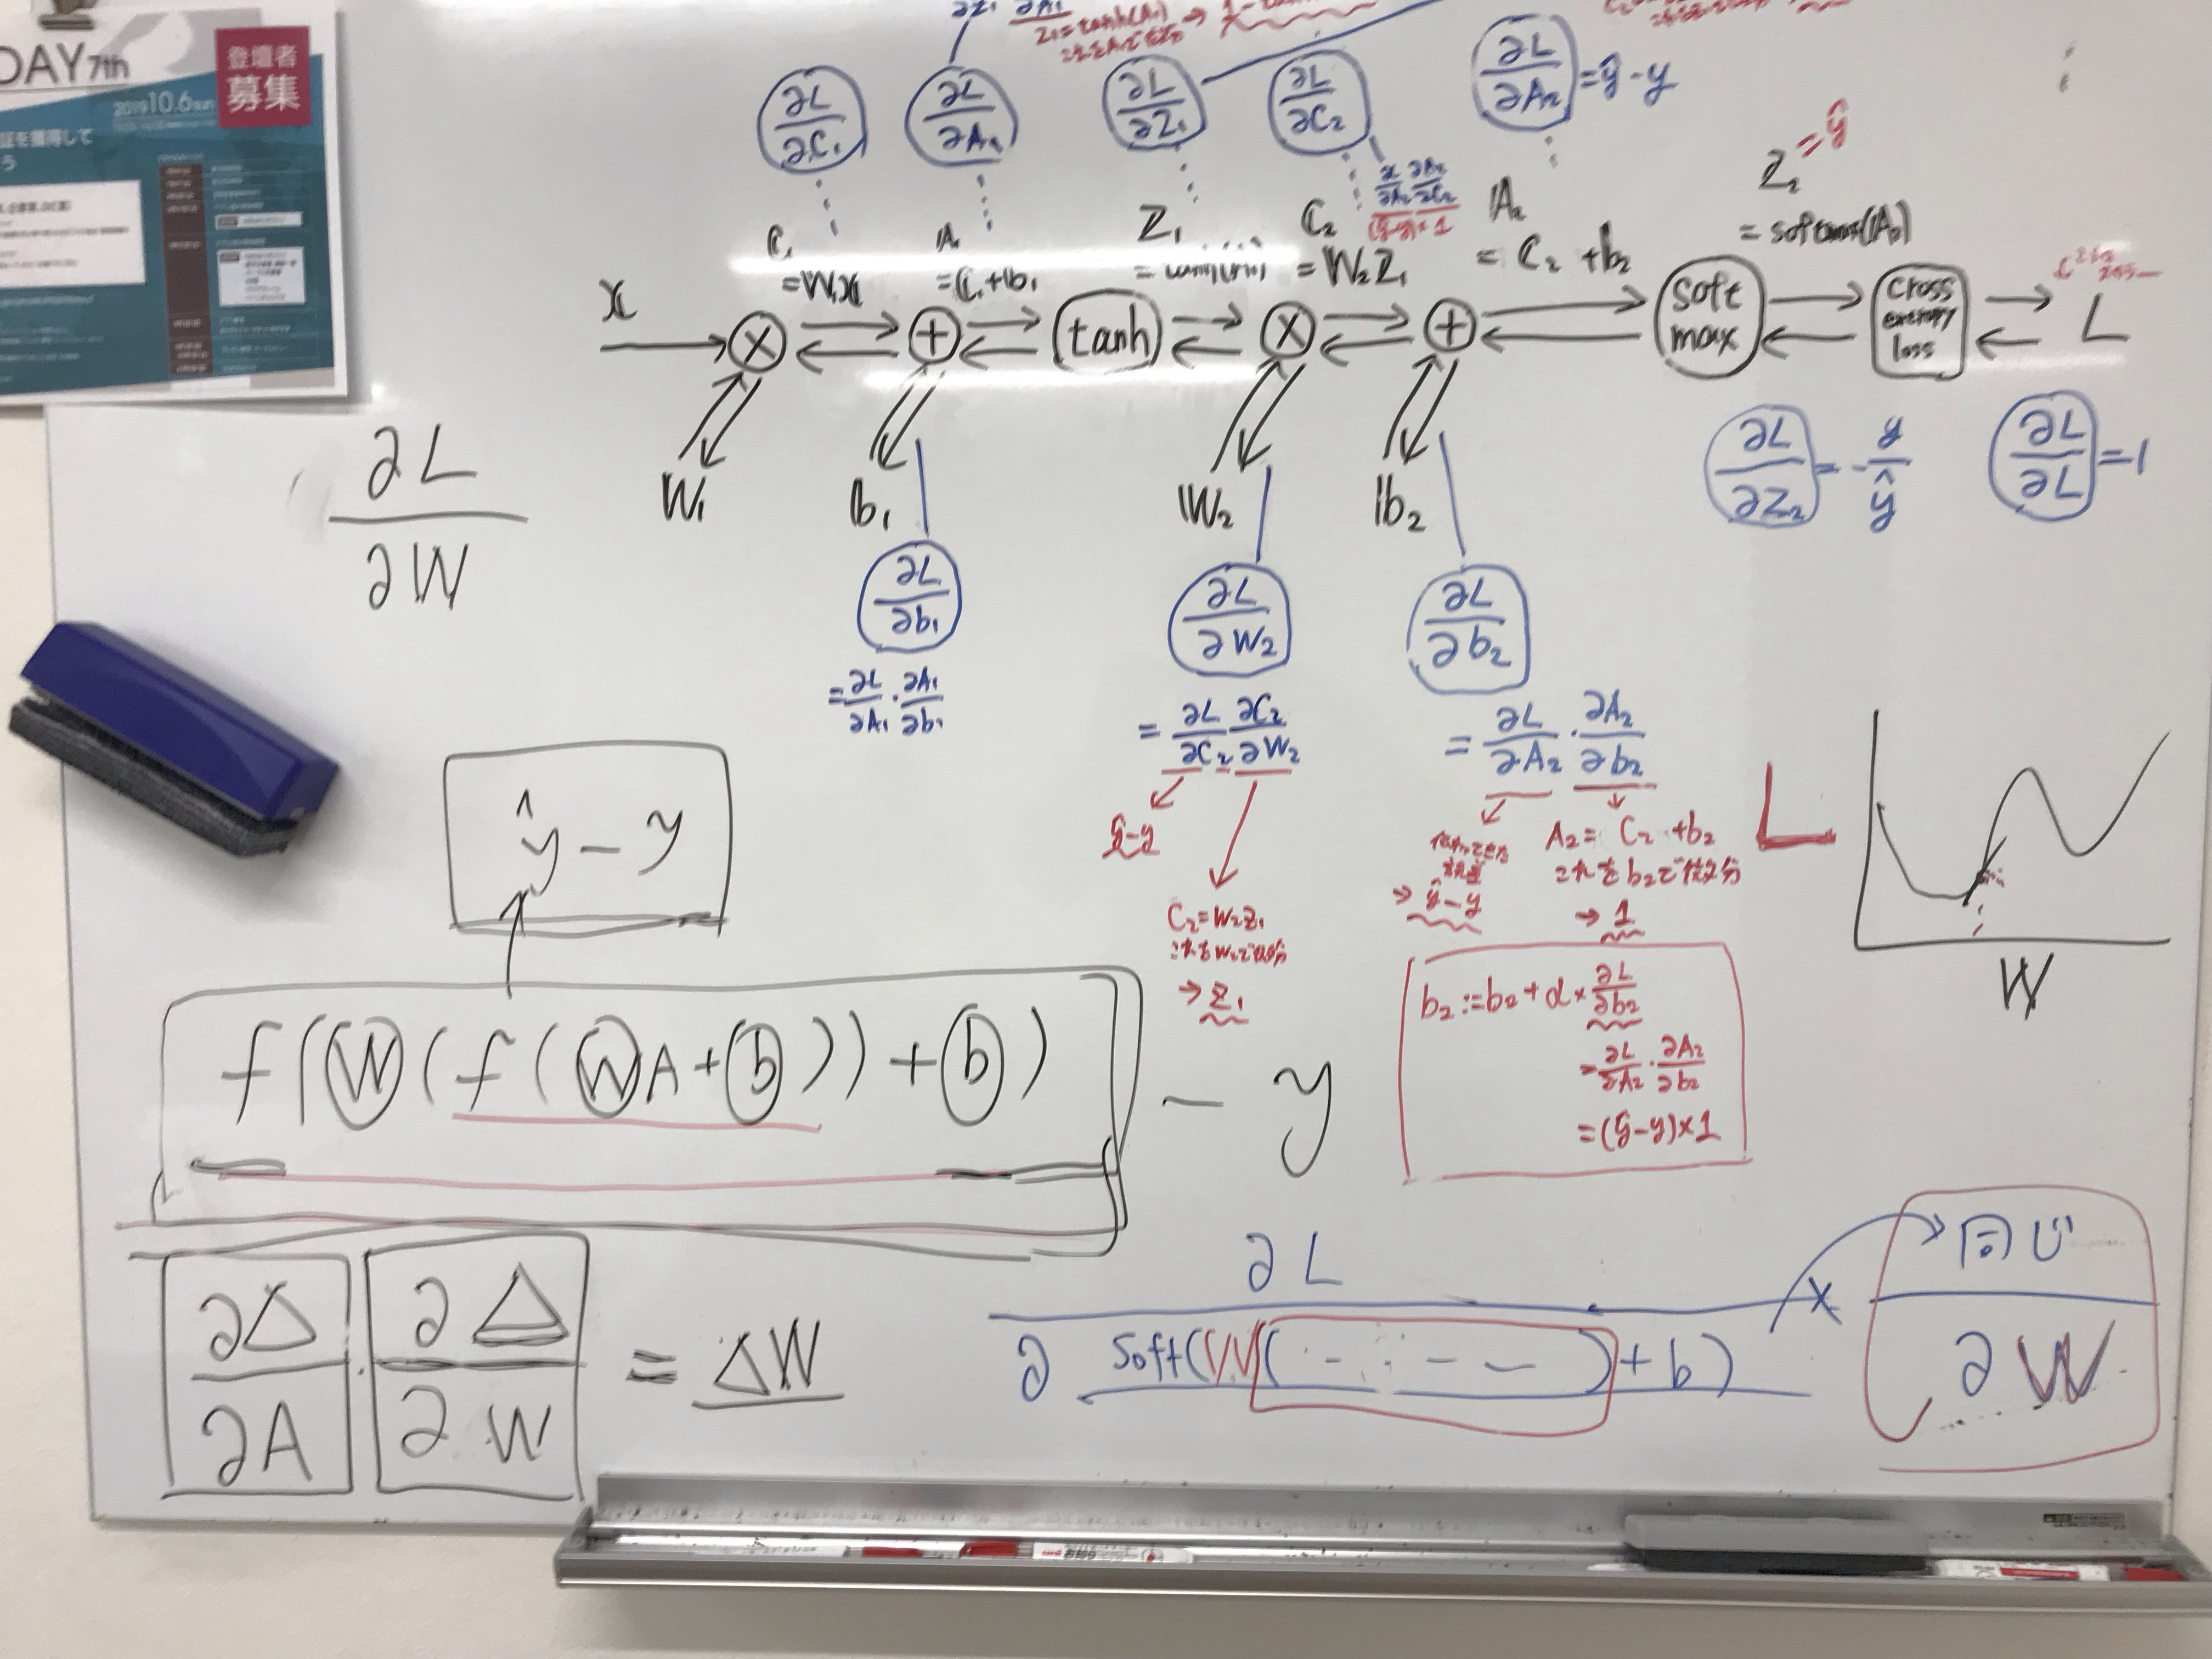 DAY 7th
登壇者
募集
2019 10.6 sun
証を獲得して
∂L/∂C₁
∂L/∂A₁
∂L/∂Z₁
∂L/∂C₂
∂L/∂A₂ = ŷ - y
Z₁ = tanh(A₁)
∂L/∂A₂ ∂A₂/∂C₂
(ŷ-y) × 1
x
C₁ = W₁x
A₁ = C₁ + b₁
Z₁
C₂ = W₂Z₁
A₂ = C₂ + b₂
Z₂ = ŷ
= softmax(A₂)
× + tanh × + soft max cross entropy loss L
W₁ b₁ W₂ b₂
∂L/∂Z₂ = - y/ŷ
∂L/∂L = 1
∂L/∂W
∂L/∂b₁
= ∂L/∂A₁ · ∂A₁/∂b₁
∂L/∂W₂
= ∂L/∂C₂ ∂C₂/∂W₂
ŷ-y
C₂ = W₂Z₁
これをW₂で微分
→ Z₁
∂L/∂b₂
= ∂L/∂A₂ · ∂A₂/∂b₂
→ ŷ - y
A₂ = C₂ + b₂
これをb₂で微分
→ 1
b₂ := b₂ + α × ∂L/∂b₂
= ∂L/∂A₂ · ∂A₂/∂b₂
= (ŷ-y) × 1
L
W
ŷ - y
f(W(f(WA+b))+b) - y
∂△/∂A · ∂△/∂W = △W
∂L/∂ soft(W(· - · · - -)+b) × 同じ/∂W